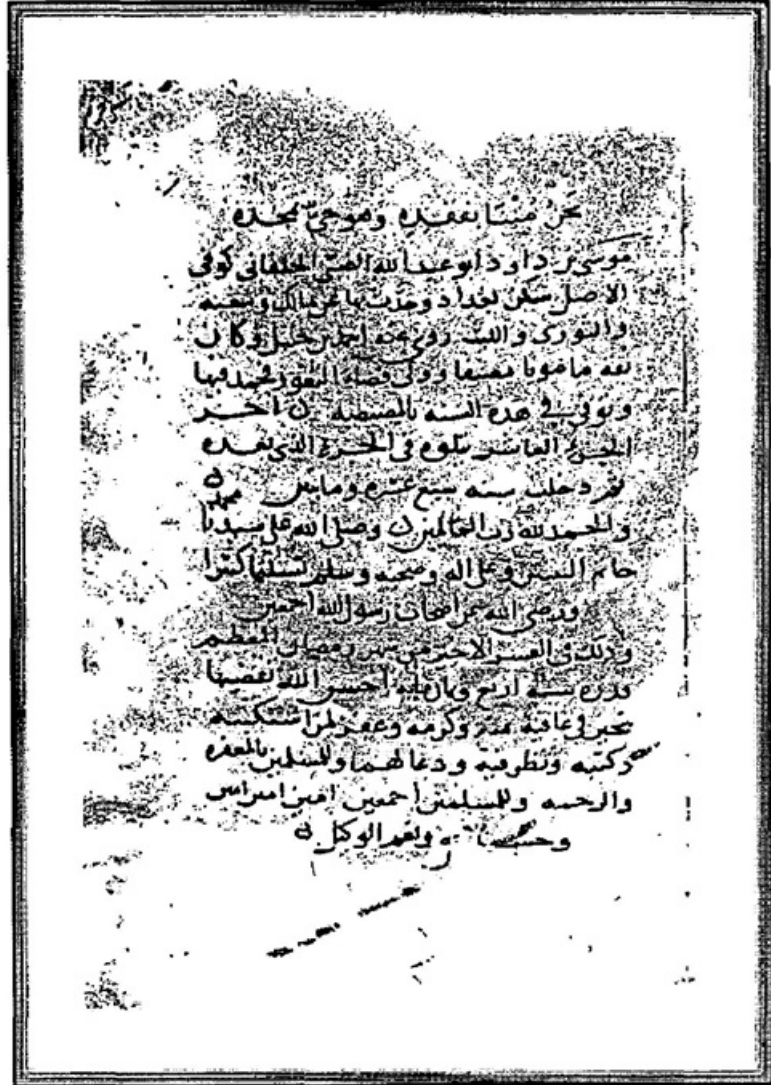 نحن متنا بفقده وهو حي بمجده
موسى بن داود ابو عبد الله الضبي الخلقاني كوفي
الاصل سكن بغداد وحدث بها عن مالك وشعبة
والثوري والليث روى عنه احمد بن حنبل وكان
ثقة مامونا مصنفا وولي قضاء الثغور فحمد فيها
وتوفي في هذه السنة بالمصيصة آخر
الجزء العاشر يتلوه في الجزء الذي بعده
ثم دخلت سنة سبع عشرة ومايتين
والحمد لله رب العالمين وصلى الله على سيدنا محمد
خاتم النبيين وعلى اله وصحبه وسلم تسليما كثيرا
ورضي الله عن اصحاب رسول الله اجمعين
وذلك في العشر الاخير من شهر رمضان المعظم
قدره سنة اربع وثمان ماية احسن الله تقضيها
بخير في عافية بمنه وكرمه وغفر لمن استكتبه
وكتبه ونظر فيه ودعا لهما وللمسلمين بالمغفرة
والرحمة وللمسلمين اجمعين امين امين امين
وحسبنا الله ونعم الوكيل